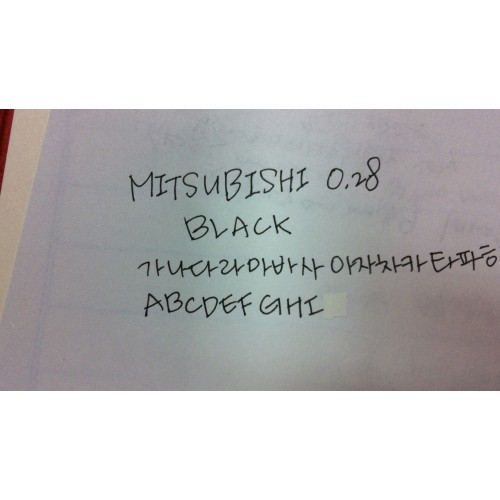 MITSUBISHI 0.28
BLACK
가나다라마바사아자차카타파하
ABCDEFGHI